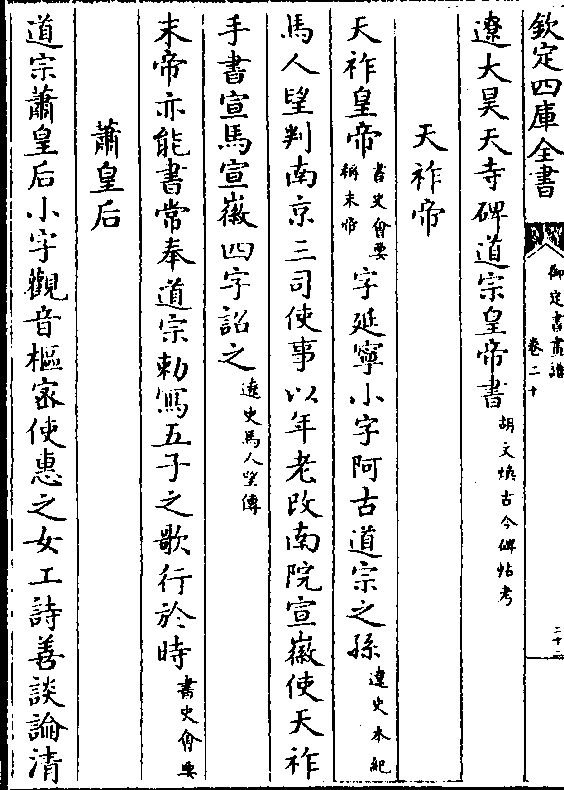 欽定四庫全書
御定書畫譜
卷二十
遼大昊天寺碑道宗皇帝書胡文煥古今碑帖考
天祚帝
天祚皇帝書史會要稱末帝字延寧小字阿古道宗之孫遼史本紀
馬人望判南京三司使事以年老改南院宣徽使天祚
手書宣馬宣徽四字詔之遼史馬人望傳
末帝亦能書常奉道宗勅寫五子之歌行於時書史會要
蕭皇后
道宗蕭皇后小字觀音樞密使惠之女工詩善談論清